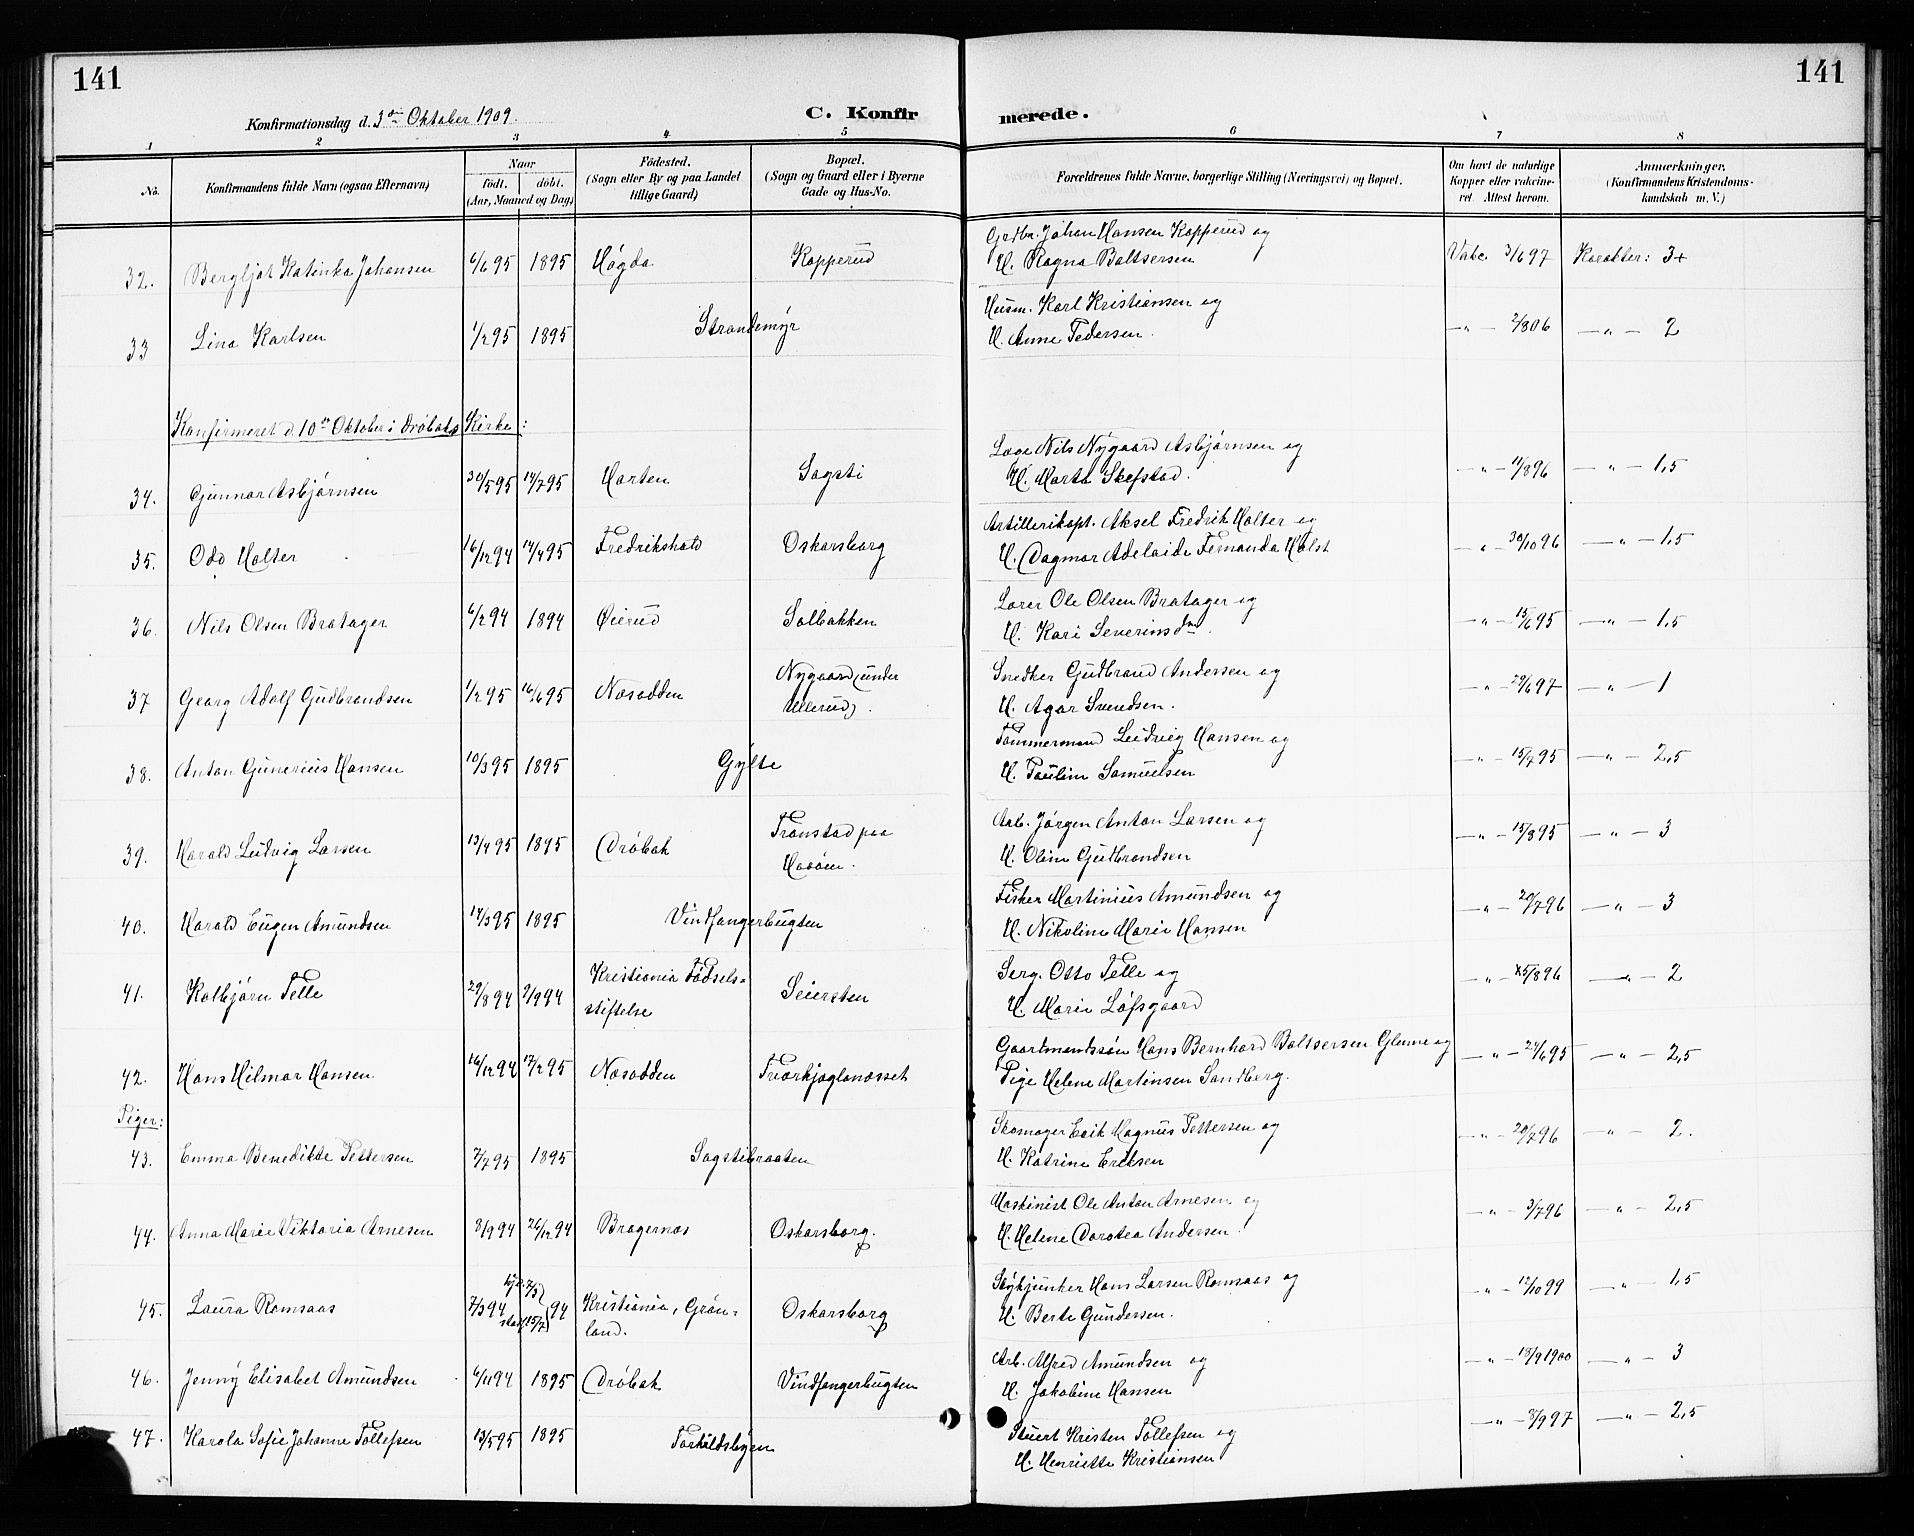 141
141
Konfirmationsdag d. 3die Oktober 1909.
C. Konfirmerede.
1 2 3 4 5 6 7 8
No.
Konfirmandens fulde Navn (ogsaa Efternavn)
Naar
født. døbt.
(Aar, Maaned og Dag)
Fødested.
(Sogn eller By og paa Landet
tillige Gaard)
Bopæl.
(Sogn og Gaard eller i Byerne
Gade og Hus-No.
Forældrenes fulde Navne, borgerlige Stilling (Næringsvei) og Bopæl.
Om havt de naturlige
Kopper eller vakcine-
ret. Attest herom.
Anmærkninger.
(Konfirmandens Kristendoms-
kundskab m. V.)
32. Bergljot Katinka Johansen 6/6 95 1895 Høgda Kopperud Grdbr. Johan Hansen Kopperud og
H. Ragna Baltsersen Vakc. 3/6 97 Karakter: 3+
33 Lina Karlsen 1/2 95 1895 Strandemyr Husm. Karl Kristiansen og
H. Anne Pedersen. —"— 2/8 06 —"— 2
Konfirmeret d. 10de Oktober i Drøbaks Kirke:
34. Gunnar Asbjørnsen 30/5 95 14/7 95 Horten Sogsti Læge Nils Nygaard Asbjørnsen og
H. Marta Skefstad. —"— 11/8 96 —"— 1,5
35. Odd Holter 16/12 94 14/4 95 Fredrikshald Oskarsborg Artillerikapt. Aksel Fredrik Holter og
H. Dagmar Adelaide Fernanda Holst —"— 30/10 96 —"— 1,5
36. Nils Olsen Bratager 6/2 94 1894 Øierud Solbakken Lærer Ole Olsen Bratager og
H. Kari Severinsdtr. —"— 15/6 95 —"— 1,5
37 Georg Adolf Gudbrandsen 1/2 95 16/6 95 Næsodden Nygaard (under
Ullerud). Snedker Gudbrand Andersen og
H. Agar Svendsen. —"— 29/6 97 —"— 1
38. Anton Gunerius Hansen 10/3 95 1895 Gylte Tømmermand Ludvig Hansen og
H. Pauline Samuelsen —"— 15/7 95 —"— 2,5
39. Harald Ludvig Larsen 13/4 95 1895 Drøbak Tronstad paa
Haaøen. Arb. Jørgen Anton Larsen og
H. Oline Gudbrandsen —"— 15/8 95 —"— 3
40. Harald Eugen Amundsen 14/3 95 1895 Vindfangerbugten Fisker Martinius Amundsen og
H. Nikoline Marie Hansen —"— 20/7 96 —"— 3
41. Kolbjørn Telle 29/8 94 2/9 94 Kristiania Fødsels=
stiftelse Seiersten Serg. Otto Telle og
H. Marie Løfsgaard —"— 25/8 96 —"— 2
42. Hans Hilmar Hansen 16/12 94 17/2 95 Næsodden Tværkjaglanæsset Gaardmandssøn Hans Bernhard Baltsersen Glenne og
Pige Helene Martinsen Sandberg. —"— 24/6 95 —"— 2,5
Piger:
43. Emma Benedikte Pettersen 7/7 95 1895 Sogstibraaten Skomager Erik Magnus Pettersen og
H. Katrine Eriksen —"— 20/7 96 —"— 2.
44. Anna Marie Viktoria Arnesen 8/9 94 26/12 94 Bragernæs Oskarsborg. Maskinist Ole Anton Arnesen og
H. Helene Dorotea Andersen. —"— 3/7 96 —"— 2,5
45. Laura Romsaas 7/3 94 7/5 stadf. 15/7 94 Kristiania, Grøn-
land. Oskarsborg Støkjunker Hans Larsen Romsaas og
H. Berte Gundersen. —"— 12/10 99 —"— 1,5
46. Jenny Elisabet Amundsen 6/11 94 1895 Drøbak Vindfangerbugten Arb. Alfred Amundsen og
H. Jakobine Hansen —"— 18/9 1900 —"— 3
47. Karola Sofie Johanne Tollefsen 13/5 95 1895 Torkildsbyen Stuert Kristen Tollefsen og
H. Henriette Kristiansen —"— 8/9 97 —"— 2,5